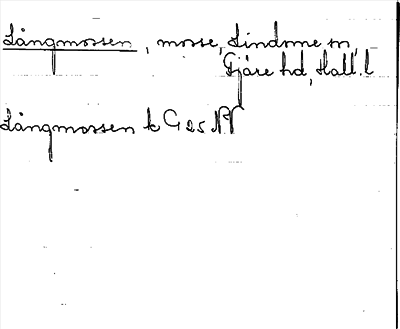 Långmossen, mosse, Lindome sn,
Fjäre hd, Hall. l
Långmossen k G 25 NV